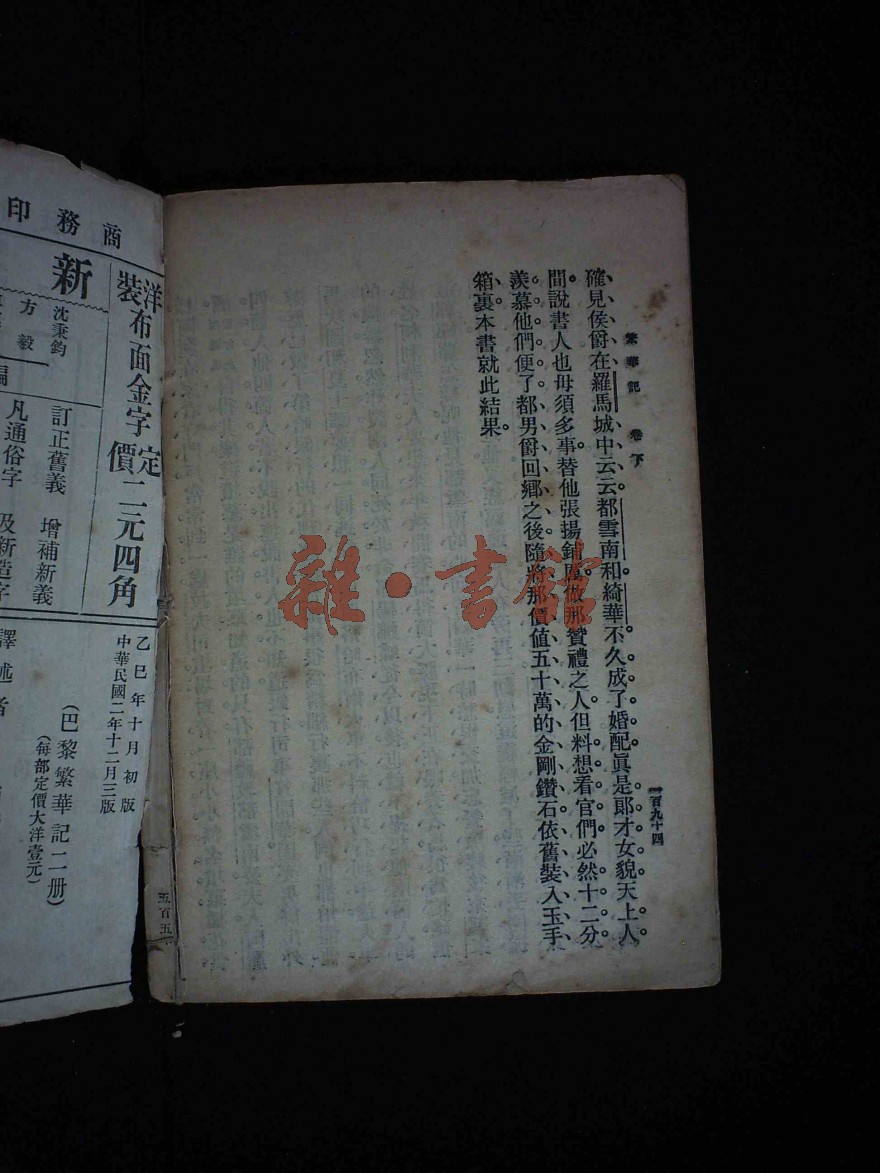 繁華記 卷下
一百九十四
確見侯爵在羅馬城中云云都雪南和綺華不久成了婚配眞是郞才女貌天上人
間說書人也毋須多事替他張揚鋪厲做那贊禮之人但料想看官們必然十二分
羨慕他們便了都男爵回鄉之後隨將那價値五十萬的金剛鑽石依舊裝入玉手
箱裏本書就此結果
雜·書館
商務印
新
沈秉鈞
方毅
洋裝布面金字 定價二元四角
訂正舊義 增補新義
凡通俗字 及新造字
乙巳年十月初版
中華民國二年十二月三版
(巴黎繁華記二册)
(每部定價大洋壹元)
譯述者
五百五